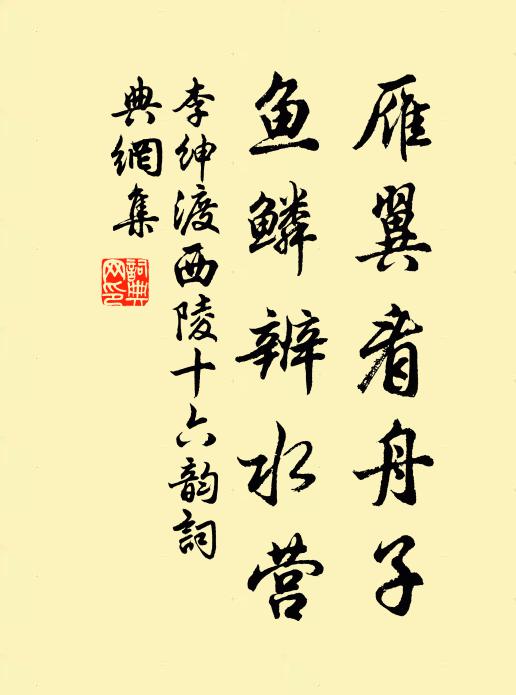 雁翼看舟子
鱼鳞辨水营
李绅渡西陵十六韵詞
典網集
詞典网印